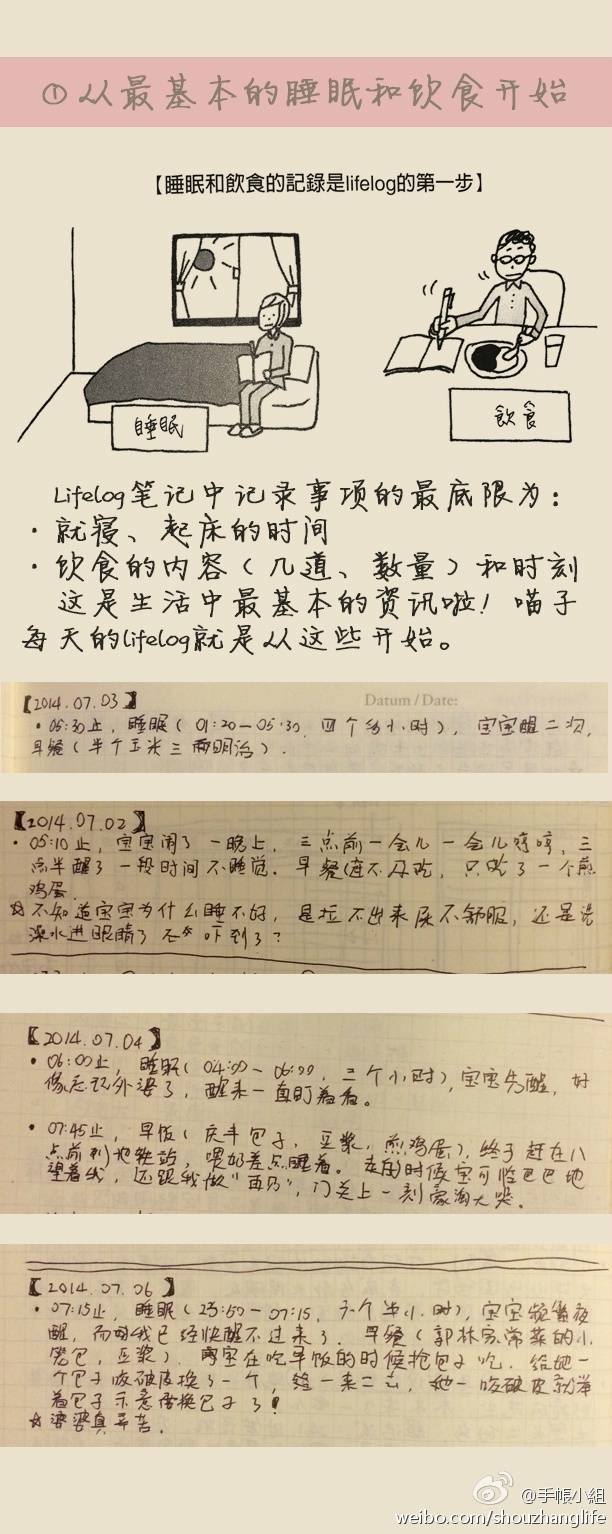 ①从最基本的睡眠和饮食开始
【睡眠和飲食的記錄是lifelog的第一步】
睡眠
飲食
Lifelog笔记中记录事项的最底限为：
·就寝、起床的时间
·饮食的内容（几道、数量）和时刻
这是生活中最基本的资讯啦！喵子
每天的lifelog就是从这些开始。
Datum / Date:
【2014.07.03】
·05:30止，睡眠（01:20—05:30，四个多小时），宝宝醒二次，
早餐（半个玉米三明治）.
【2014.07.02】
·05:10止，宝宝闹了一晚上，三点前一会儿一会儿哼哼，三
点半醒了一段时间不睡觉．早餐 不及吃，只吃了一个煎
鸡蛋.
☆不知道宝宝为什么睡不好，是拉不出来尿不舒服，还是洗
澡水进眼睛了 吓到了？
【2014.07.04】
·06:00止，睡眠（04:00—06:00，二个小时），宝宝先醒，好
像忘记外婆了，醒来一直盯着看。
·07:45止，早饭（庆丰包子，豆浆，煎鸡蛋），终于赶在八
点前到地铁站，喂奶差点睡着。走的时候宝可怜巴巴地
望着我，还跟我做“再见”，门关上一刻嚎淘大哭．
【2014.07.06】
·07:15止，睡眠（23:50—07:15，六个半小时），宝宝频繁夜
醒，而母我已经快醒不过来了．早餐（郭林家常菜的小
笼包，豆浆）．宝在吃早饭的时候抢包子吃．给她一
个包子咬破皮换了一个，给一来二去，她一咬破皮就举
着包子示意你换包子了！
☆婆婆真辛苦．
@手帳小組
weibo.com/shouzhanglife